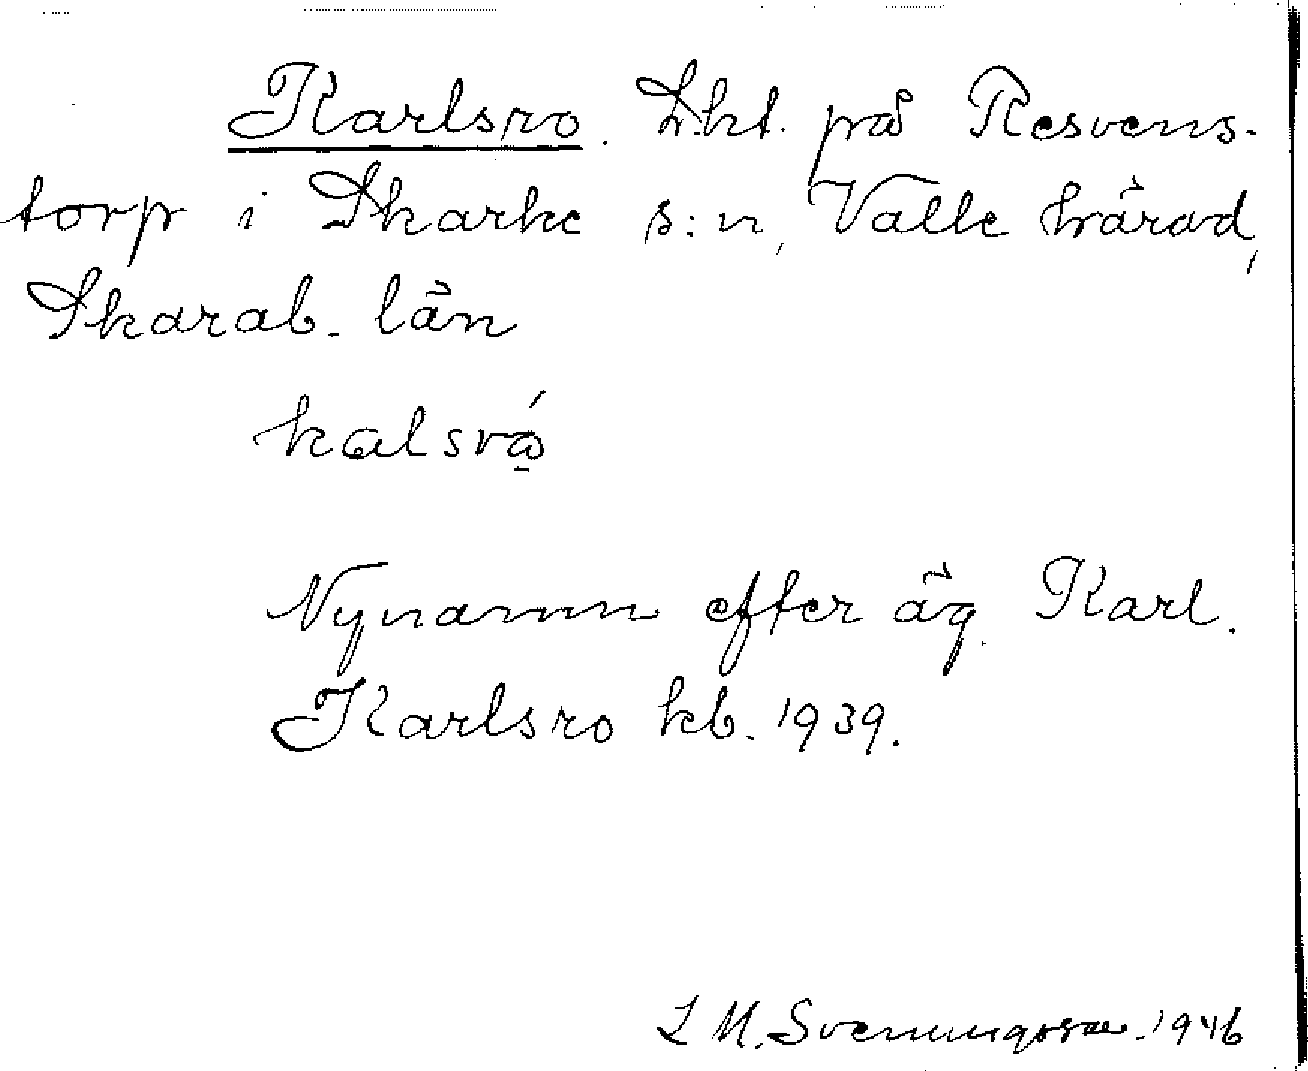 Karlsro. Lht. på Resvens-
torp i Skarke s:n, Valle härad,
Skarab. län
kalsró̱
Nynamn efter äg. Karl.
Karlsro kb. 1939.
L M. Svenungsson. 1946